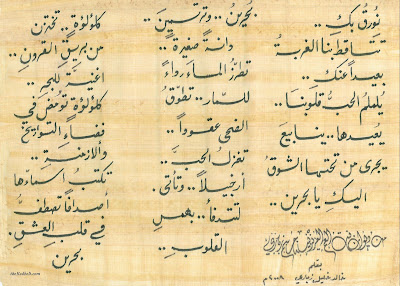 نورق بك ..
تتساقط بنا الغربة
بعيداً عنك ..
يلملم الحب قلوبنا ..
يعيدها .. ينابيع
يجرى من تحتها الشوق
اليك يا بحرين ..
بحرين .. وترتسمين ..
دانة صغيرة ..
تطرز الماء رداءً
للسمار .. تطوّق
الضحى عقوداً ..
تغزل الحبَّ ..
وتأتى .
لتتدفأ .. بهمس
القلوب ..
كلؤلؤة .. تختزن
من بريق القرون ..
اغنية للبحر ..
كلؤلؤة تومض في
فضاء التواريخ
والازمنة ..
تكتب اسماءها
أصدافاً تصطف
في قلب العشق .
بحرين
بقلم
خالد